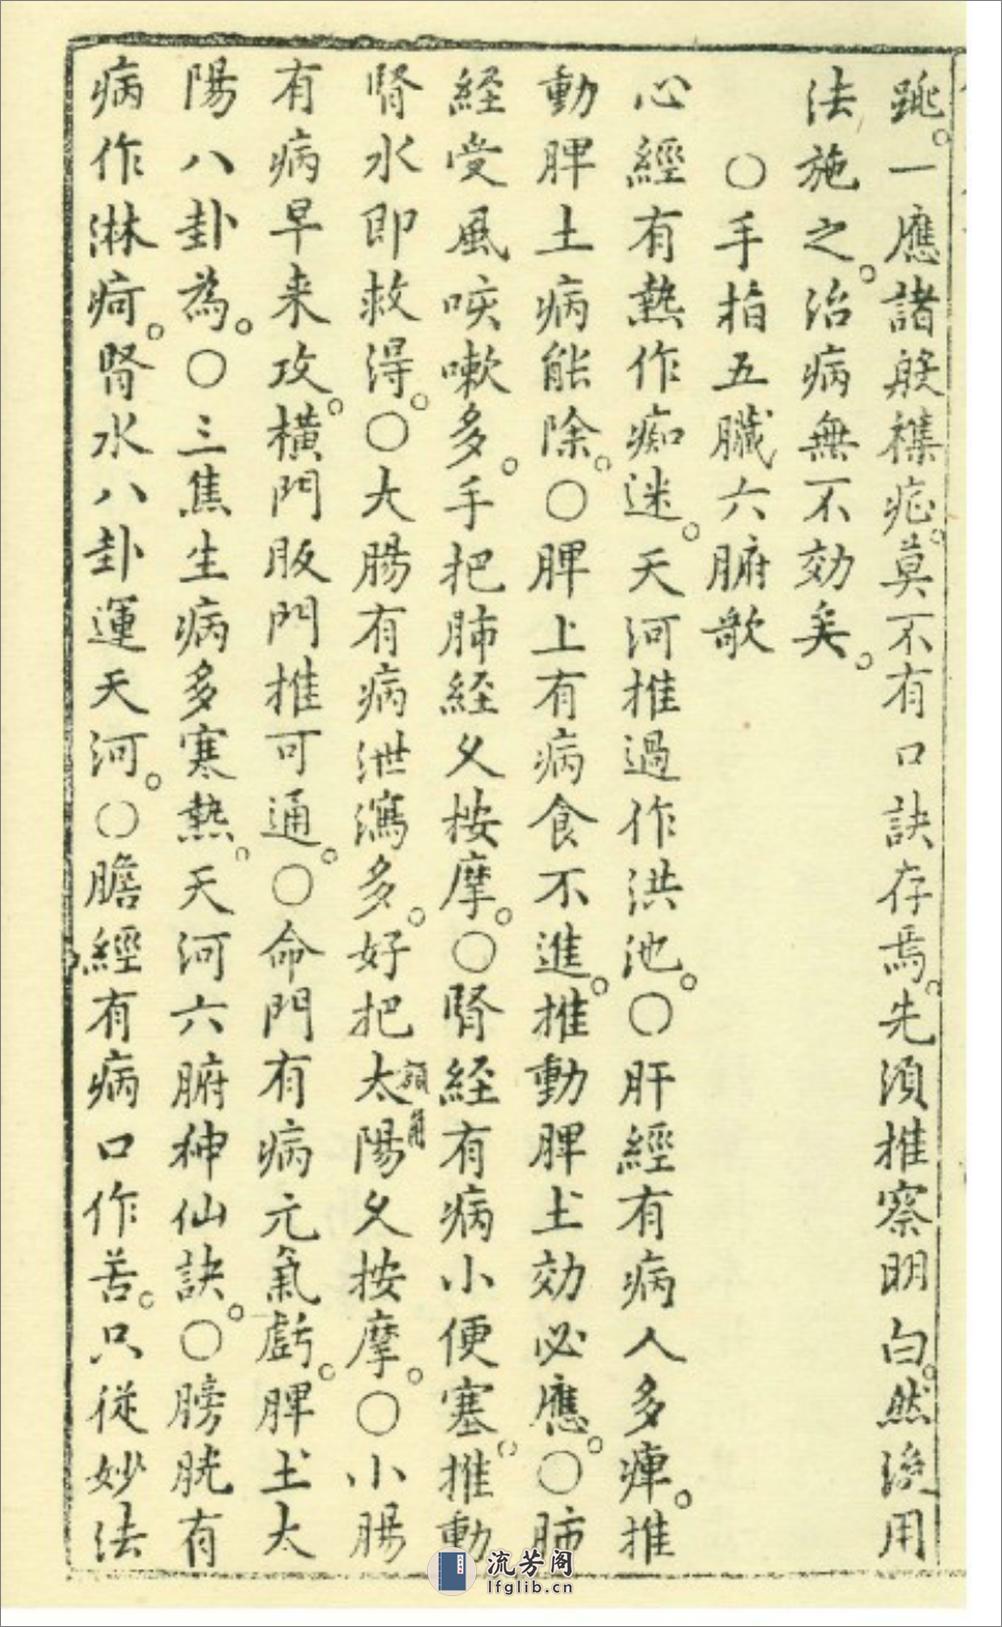 跳。一應諸般襍症。莫不有口訣存焉。先湏推察明白。然後用
法施之。治病無不効矣。
○手指五臟六腑歌
心經有熱作痴迷。天河推過作洪池。○肝經有病人多痺。推
動脾土病能除。○脾上有病食不進。推動脾土効必應。○肺
経受風咳嗽多。手把肺経乂按摩。○腎経有病小便塞。推動
腎水即救淂。○大腸有病泄瀉多。好把太陽額角乂按摩。○小腸
有病早来攻。橫門版門推可通。○命門有病元氣虧。脾土太
陽八卦為。○三焦生病多寒熱。天河六腑神仙訣。○膀胱有
病作淋疴。腎水八卦運天河。○膽經有病口作苦。只従妙法
流芳阁
lfglib.cn